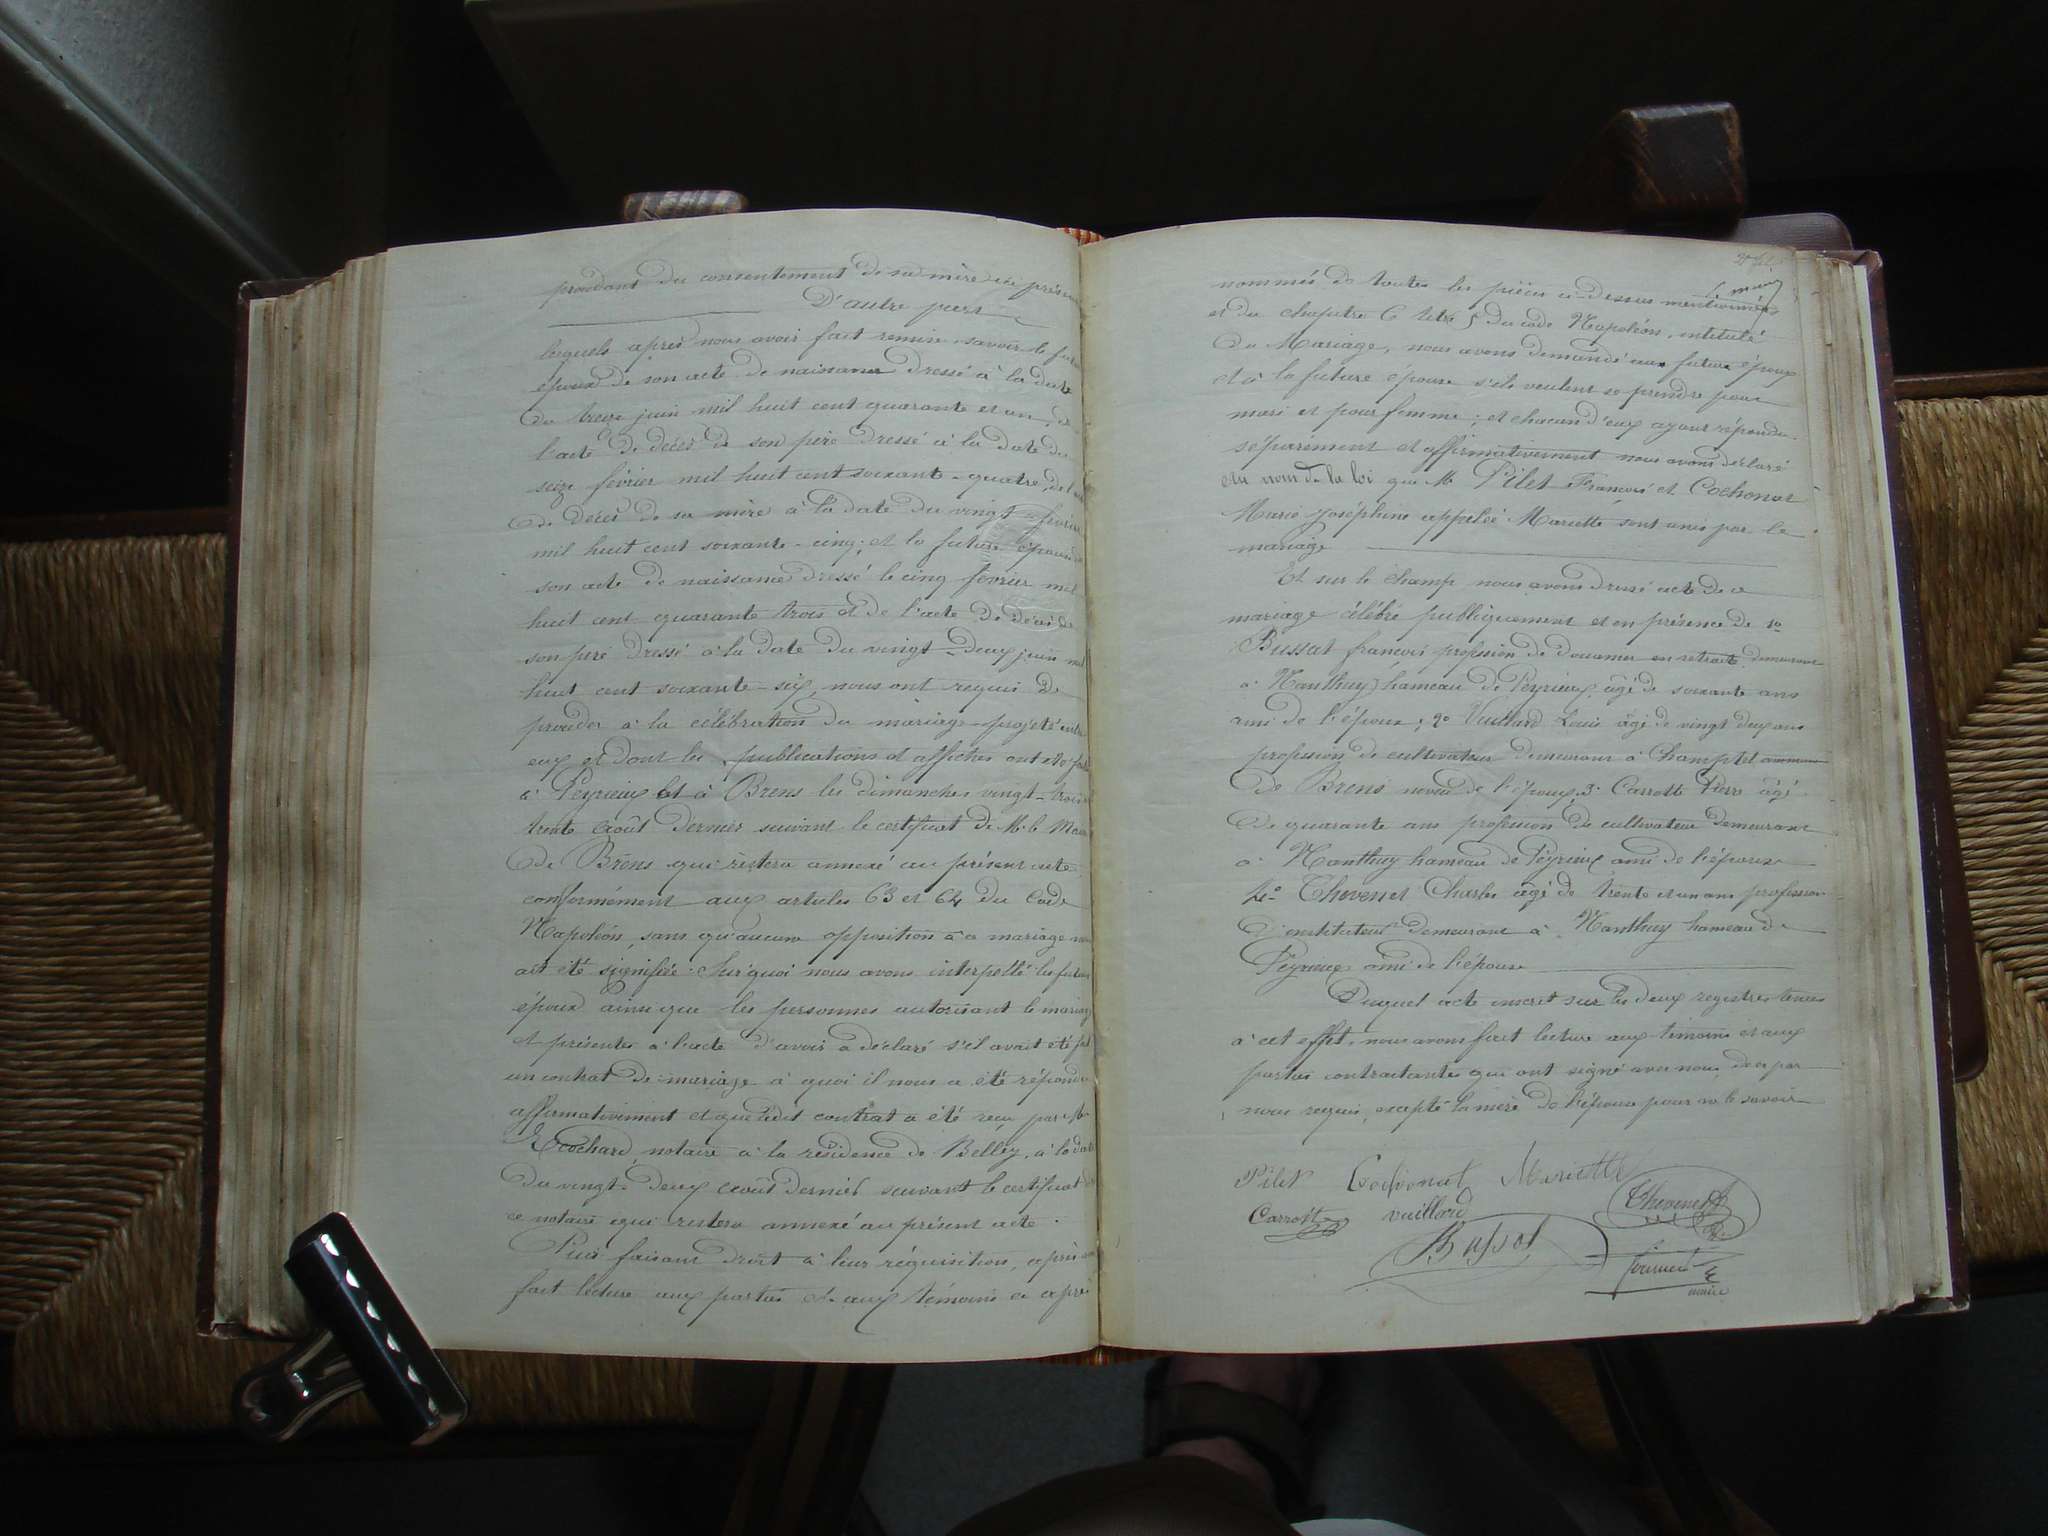 procédant du consentement de sa mère ici présente
D'autre part
lesquels après nous avoir fait remise savoir le futur
époux de son acte de naissance dressé à la date
du treize juin mil huit cent quarante et un, de
l'acte de décès de son père dressé à la date du
seize février mil huit cent soixante-quatre, de
de décès de sa mère à la date du vingt février
mil huit cent soixante-cinq; et la future épouse
son acte de naissance dressé le cinq février mil
huit cent quarante trois et de l'acte de décès de
son père dressé à la date du vingt-deux juin mil
huit cent soixante-six, nous ont requis de
procéder à la célébration du mariage projeté entre
eux et dont les publications et affiches ont été
à Peyrieux et à Brens les dimanches vingt-trois
trente août dernier suivant le certificat de M. le Maire
de Brens qui restera annexé au présent acte
conformément aux articles 63 et 64 du Code
Napoléon, sans qu'aucune opposition à ce mariage
ait été signifiée. Surquoi nous avons interpellé les futurs
époux ainsi que les personnes autorisant le mariage
et présentes à l'acte d'avoir à déclaré s'il avait été fait
un contrat de mariage à quoi il nous a été répondu
affirmativement et que ledit contrat a été reçu par Me
Ecochard, notaire à la résidence de Belley, à la date
du vingt-deux août dernier suivant le certificat
ce notaire qui restera annexé au présent acte.
Puis faisant droit à leur réquisition, après
fait lecture aux parties et aux témoins ci après
nommés de toutes les pièces ci-dessus mentionnées
et du chapitre 6 titre 5 du code Napoléon, intitulé
Du Mariage, nous avons demandé aux futurs époux
et à la future épouse s'ils veulent se prendre pour
mari et pour femme; et chacun d'eux ayant répondu
séparément et affirmativement nous avons déclaré
au nom de la loi que M. Pilet François et Cochonat
Marie Joséphine appelée Mariette sont unis par le
mariage
Et sur le champ nous avons dressé acte de ce
mariage célébré publiquement et en présence de 1º
Bussat françois profession de douanier en retraite demeurant
à Nanthuy hameau de Peyrieux âgé de soixante ans
ami de l'époux; 2º Vuillard Louis âgé de vingt deux ans
profession de cultivateur demeurant à Champtel commune
de Brens neveu de l'époux, 3º Carrotte Pierre âgé
de quarante ans profession de cultivateur demeurant
à Nanthuy hameau de Peyrieux ami de l'épouse
4º Thevenet Charles âgé de trente et un ans profession
d'instituteur demeurant à Nanthuy hameau de
Peyrieux ami de l'épouse
Duquel acte inscrit sur les deux registres tenus
à cet effet, nous avons fait lecture aux témoins et aux
parties contractantes qui ont signé avec nous, de ce par
nous requis, excepté la mère de l'épouse pour ne le savoir
Pilet Cochonat Mariette
Carrotte Vuillard Thevenet
Bussat
maire